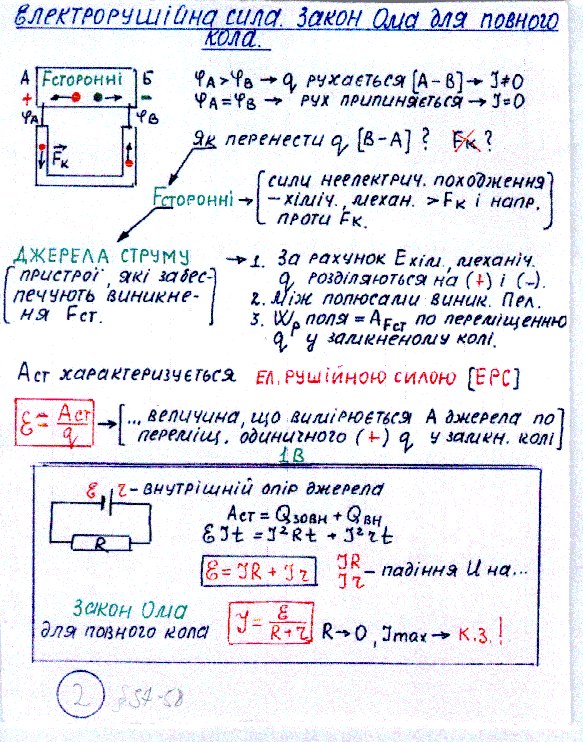 Електрорушійна сила. Закон Ома для повного
кола.
А Fсторонні Б
+ -
φА φВ
Fк
φА > φВ → q рухається [А-В] → I≠0
φА = φВ → рух припиняється → I=0
Як перенести q [В-А] ? Fк ?
Fсторонні → [сили неелектрич. походження
- хіміч., механ. > Fк і напр.
проти Fк.]
Джерела струму
[пристрої, які забез-
печують виникне-
ня Fст.
→ 1. За рахунок Ехім., механіч.
q розділяються на (+) і (-).
2. Між полюсами виник. Пел.
3. Wр поля = АFст по переміщенню
q у замкненому колі.
Аст характеризується ел. рушійною силою [ЕРС]
ℰ = Аст/q → [... величина, що вимірюється А джерела по
переміщ. одиничного (+) q у замкн. колі]
1В
ℰ r - внутрішній опір джерела
R
Аст = Qзовн + Qвн
ℰIt = I²Rt + I²rt
ℰ = IR + Ir
IR
Ir - падіння U на...
Закон Ома
для повного кола
I = ℰ/(R+r) R→0, Imax → К.З.!
2 §57-58